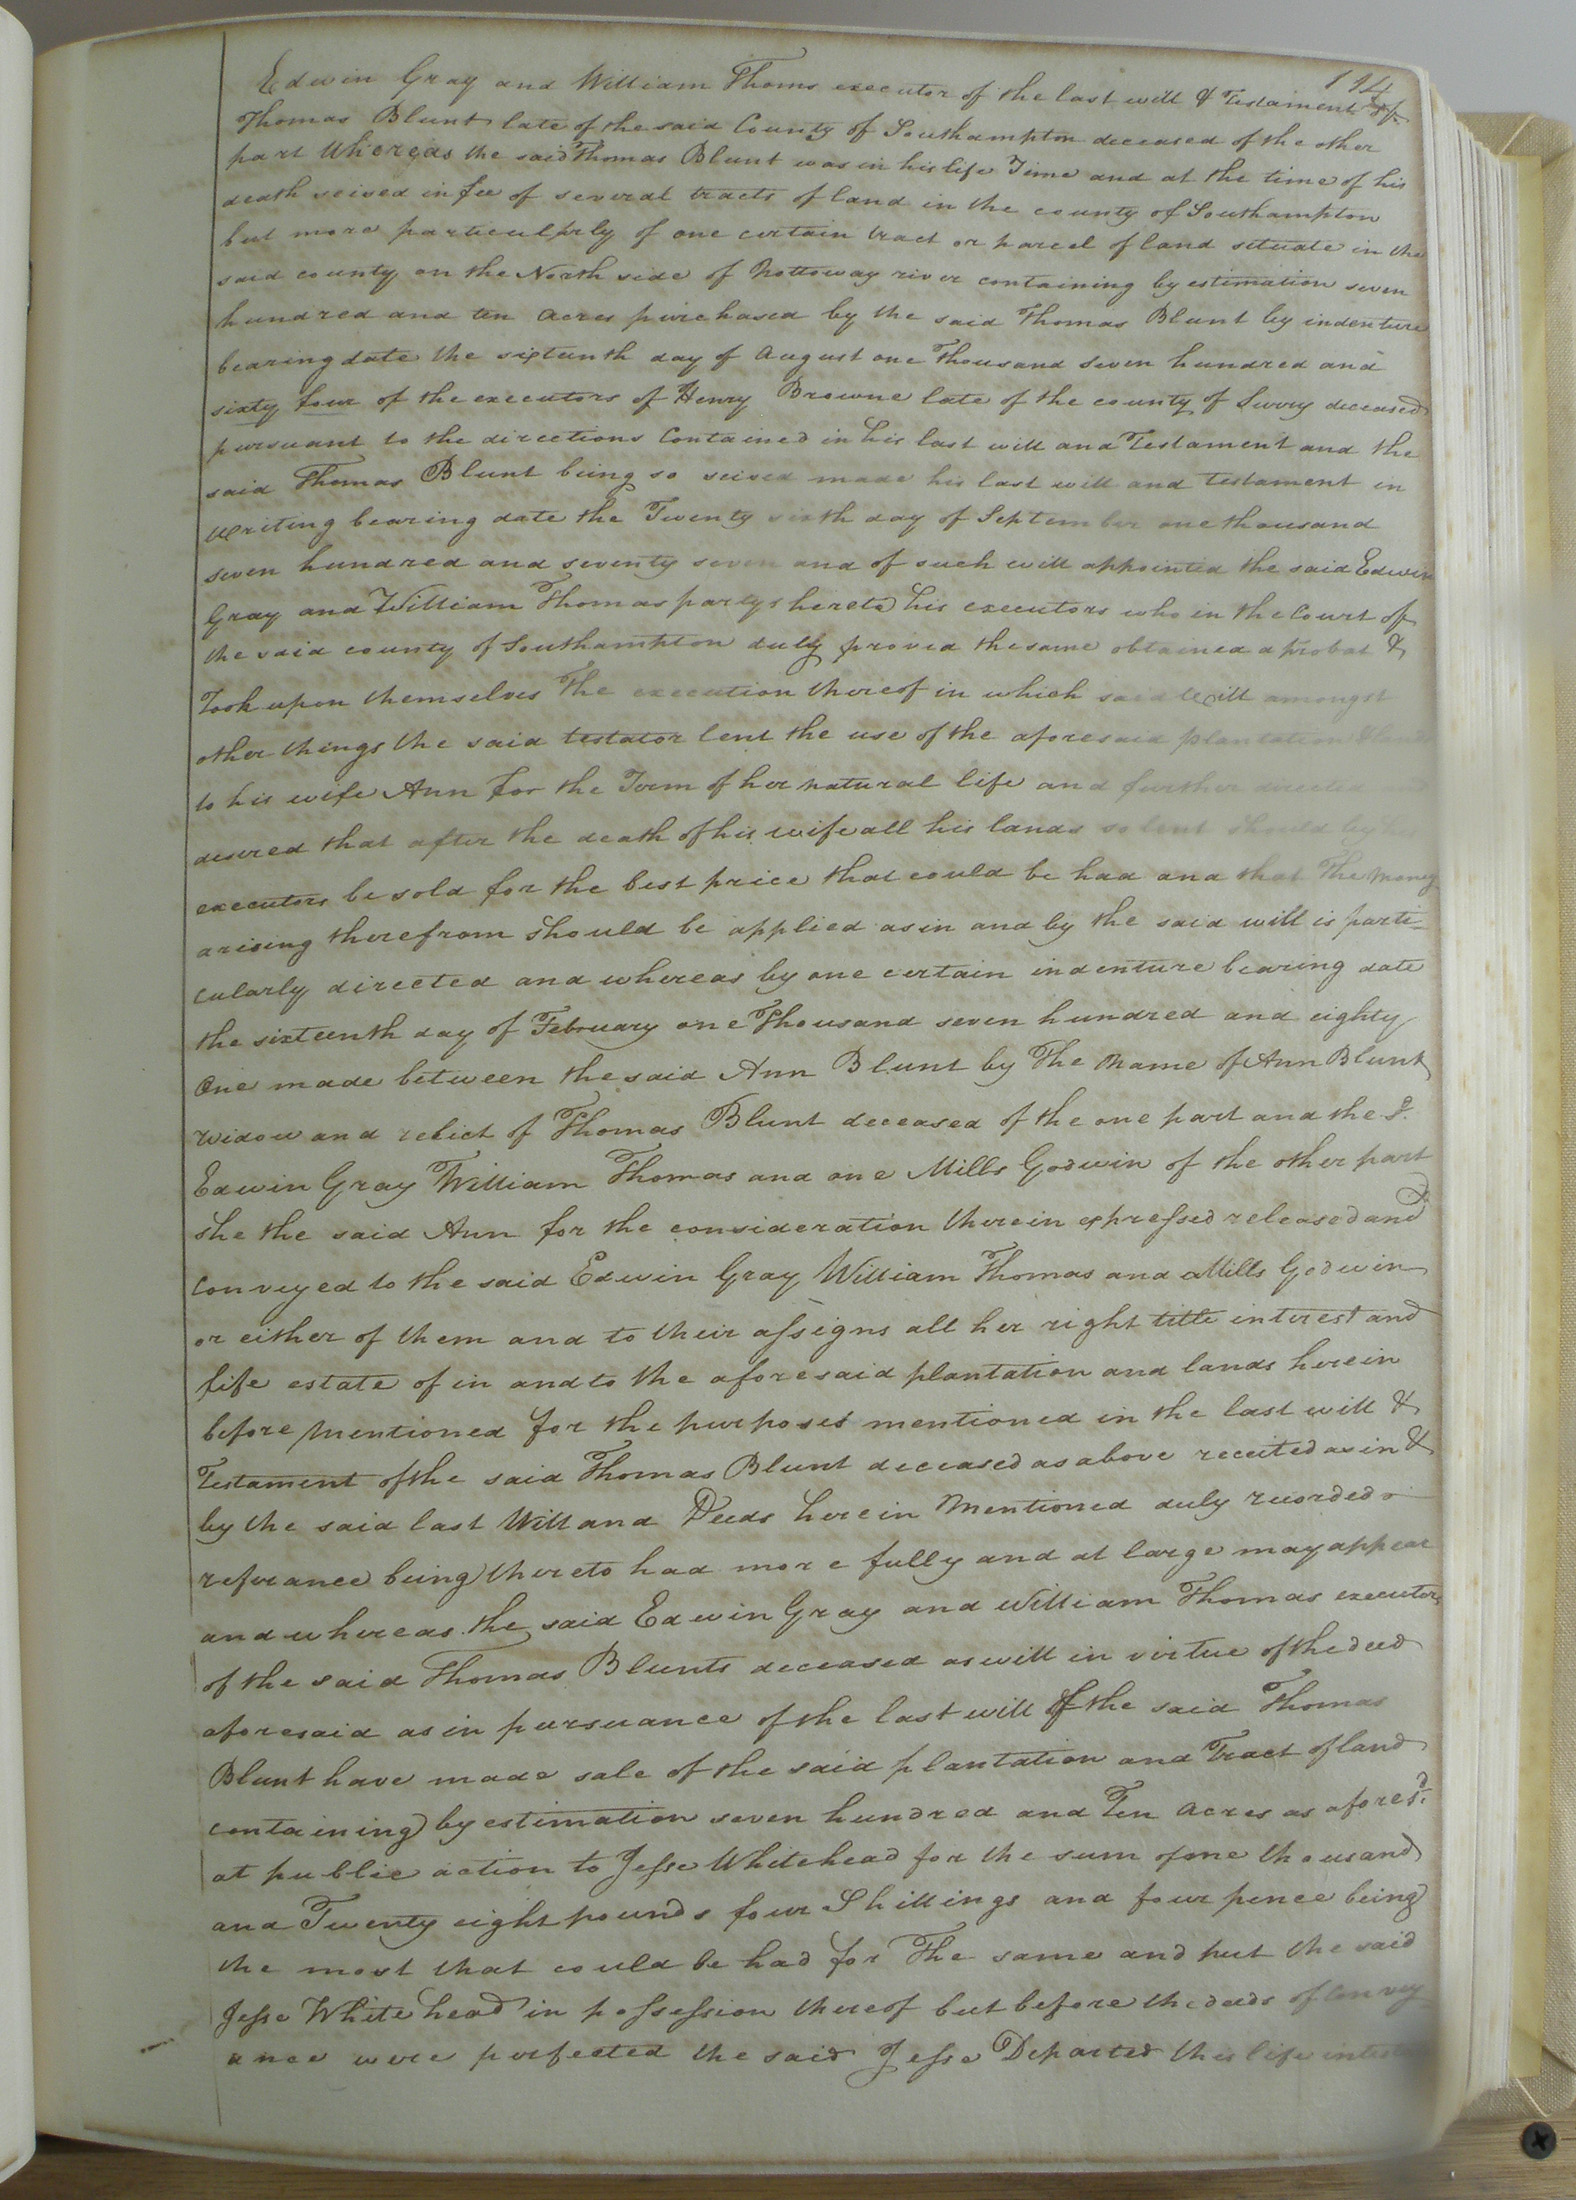 194
Edwin Gray and William Thoms executor of the last will & Testament of
Thomas Blunt late of the said County of Southampton deceased of the other
part Whereas the said Thomas Blunt was in his life Time and at the time of his
death seised in fee of several tracts of land in the county of Southampton
but more particularly of one certain tract or parcel of land situate in the
said county on the North side of Nottoway river containing by estimation seven
hundred and ten Acres purchased by the said Thomas Blunt by indenture
bearing date the sixteenth day of August one Thousand seven hundred and
sixty four of the executors of Henry Browne late of the county of Surry deceased
pursuant to the directions Contained in his last will and Testament and the
said Thomas Blunt being so seised made his last will and testament in
writing bearing date the Twenty sixth day of September one thousand
seven hundred and seventy seven and of such will appointed the said Edwin
Gray and William Thomas partys hereto his executors who in the Court of
the said county of Southampton duly proved the same obtained a probat &
Took upon themselves The execution thereof in which said Will amongst
other things the said testator lent the use of the aforesaid plantation &
to his wife Ann for the Term of her natural life and further directed
desired that after the death of his wife all his lands so lent should by
executors be sold for the best price that could be had and that The Money
arising therefrom should be applied as in and by the said will is parti-
cularly directed and whereas by one certain indenture bearing date
the sixteenth day of February one Thousand seven hundred and eighty
One made between the said Ann Blunt by The Name of Ann Blunt
widow and relict of Thomas Blunt deceased of the one part and the Sd.
Edwin Gray William Thomas and one Mills Godwin of the other part
she the said Ann for the consideration therein expressed released and
conveyed to the said Edwin Gray William Thomas and Mills Godwin
or either of them and to their assigns all her right title interest and
life estate of in and to the aforesaid plantation and lands herein
before mentioned for the purposes mentioned in the last will &
Testament of the said Thomas Blunt deceased as above receited as in &
by the said last Will and Deeds herein Mentioned duly recorded
referance being thereto had more fully and at large may appear
and whereas the said Edwin Gray and William Thomas executors
of the said Thomas Blunts deceased as will in virtue of the deed
aforesaid as in pursuance of the last will of the said Thomas
Blunt have made sale of the said plantation and Tract of land
containing by estimation seven hundred and Ten Acres as aforesd.
at public action to Jesse Whitehead for the sum of one thousand
and Twenty eight pounds four Shillings and four pence being
the most that could be had for The same and put the said
Jesse White head in possession thereof but before the deeds of Convey
ance were perfected the said Jesse Departed this life